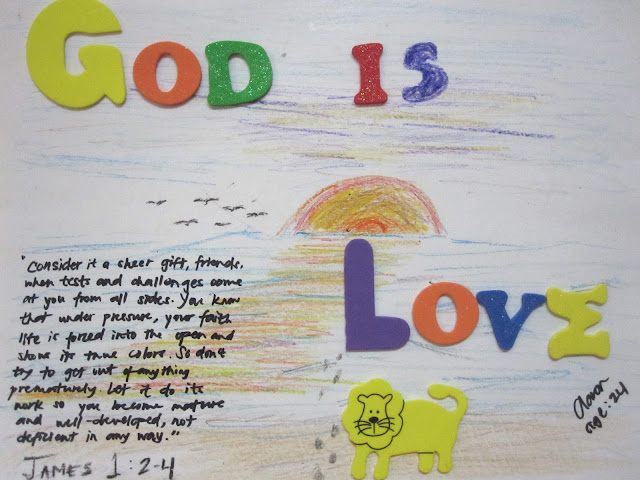 GOD IS
LOVE
"Consider it a sheer gift, friends,
when tests and challenges come
at you from all sides. You know
that under pressure, your faith
life is forced into the open and
shows its true colors. So don't
try to get out of anything
prematurely. Let it do its
work so you become mature
and well-developed, not
deficient in any way."
JAMES 1:2-4
Aaron
age: 24